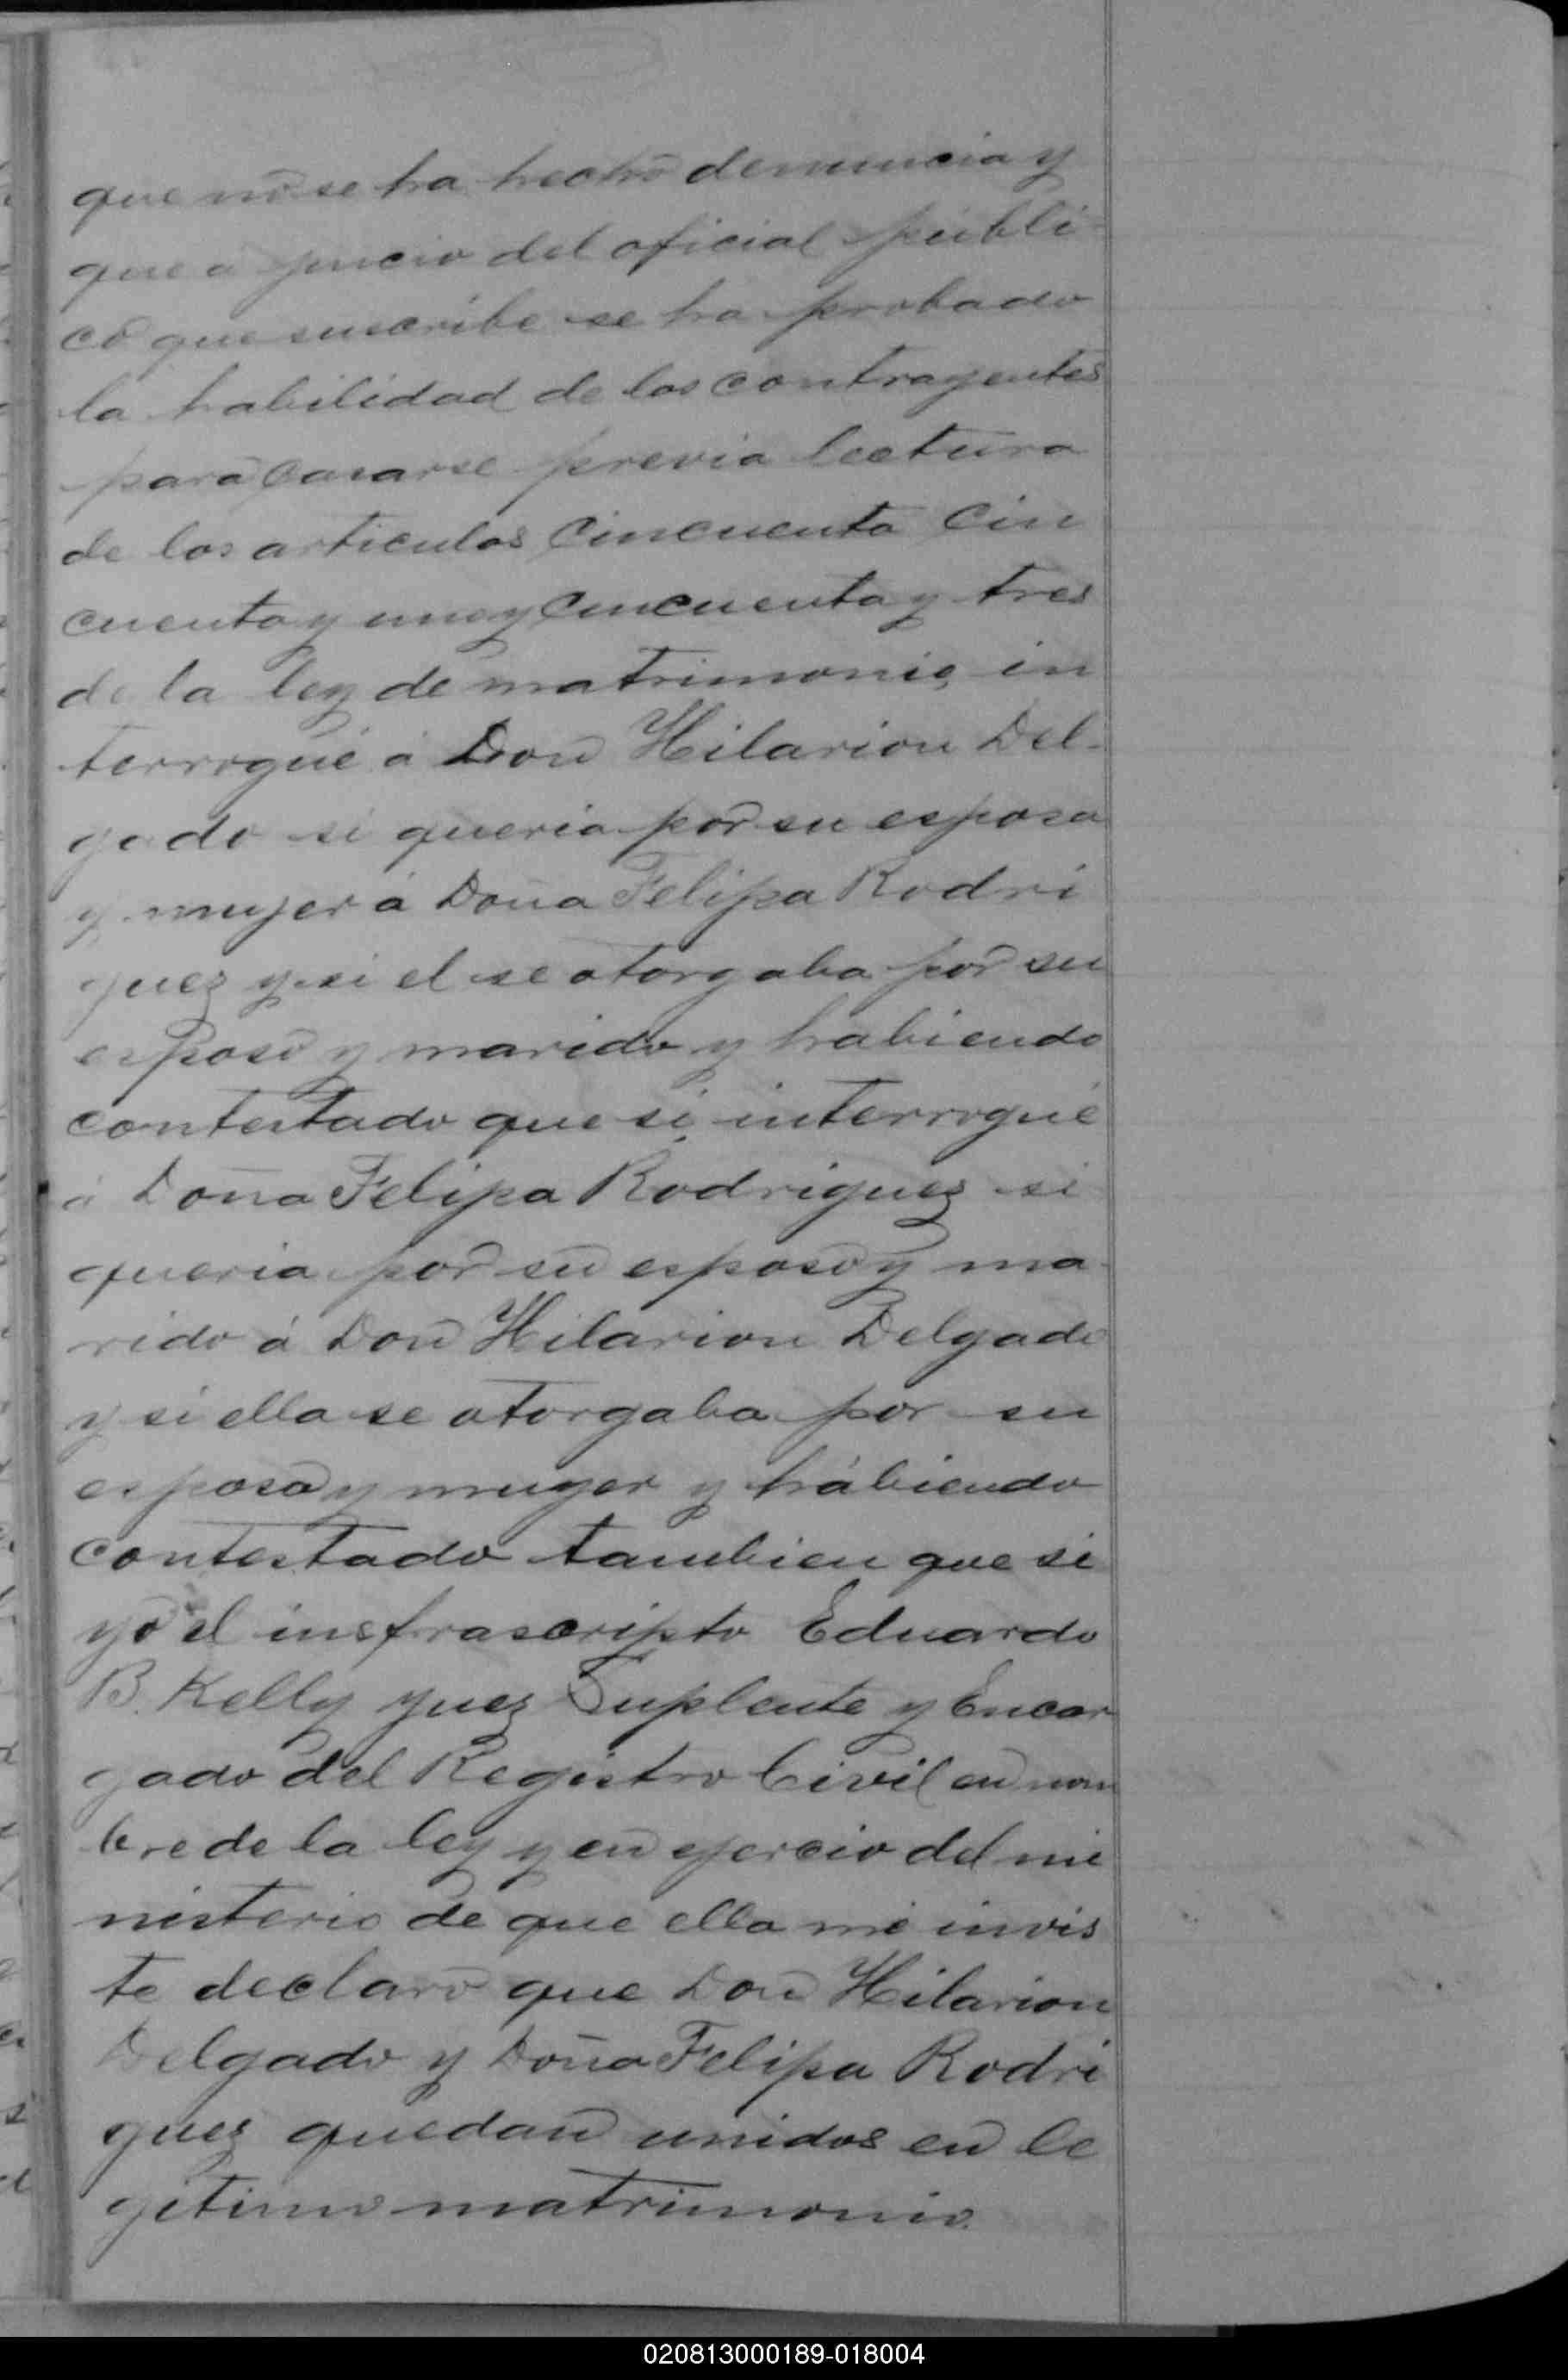 que no se ha hecho denuncia y
que a juicio del oficial públi
co que suscribe se ha probado
la habilidad de los contrayentes
para casarse previa lectura
de los articulos cincuenta cin
cuenta y uno y cincuenta y tres
de la ley de matrimonio, in
terrogué á Don Hilarion Del-
gado si queria por su esposa
y mujer á Doña Felipa Rodri
guez y si el se otorgaba por su
esposo y marido y habiendo
contestado que si, interrogué
á Doña Felipa Rodriguez si
queria por su esposo y ma
rido á Don Hilarion Delgado
y si ella se otorgaba por su
esposa y muger y habiendo
contestado tambien que si
yo el insfrascripto Eduardo
B. Kelly Juez Suplente y Encar
gado del Registro Civil en nom
bre de la ley y en ejercio del mi
nisterio de que ella me invis
te declaro que Don Hilarion
Delgado y Doña Felipa Rodri
guez quedan unidos en le
gitimo matrimonio.
020813000189-018004